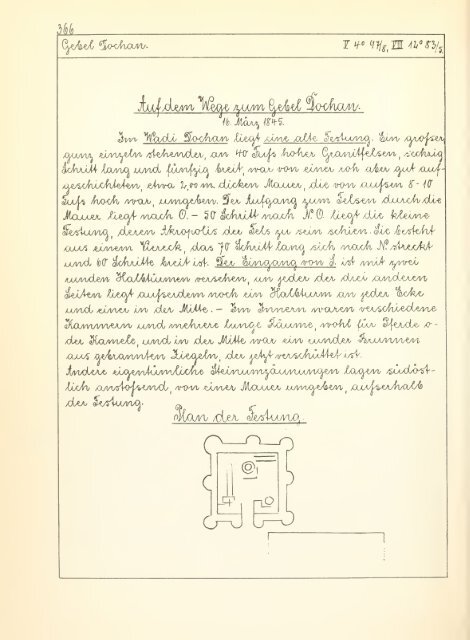 366
Gebel Dochan.
V 4° 47/8, VIII 12° 83/3.
Auf dem Wege zum Gebel Dochan.
16. März 1845.
Im Wadi Dochan liegt eine alte Festung. Ein großer
ganz einzeln stehender, an 40 Fuß hoher Granitfelsen, siebzig
Schritt lang und fünfzig breit, war von einer roh aber gut auf-
geschichteten, etwa 2,00 m dicken Mauer, die von außen 8-10
Fuß hoch war, umgeben. Der Aufgang zum Felsen durch die
Mauer liegt nach O. – 50 Schritt nach N.O. liegt die kleine
Festung, deren Akropolis der Fels zu sein schien. Sie besteht
aus einem Viereck, das 70 Schritt lang sich nach N. streckt
und 60 Schritte breit ist. Der Eingang von S. ist mit zwei
runden Halbtürmen versehen, an jeder der drei anderen
Seiten liegt außerdem noch ein Halbturm an jeder Ecke
und einer in der Mitte. – Im Innern waren verschiedene
Kammern und mehrere lange Räume, wohl für Pferde o-
der Kamele, und in der Mitte war ein runder Brunnen
aus gebrannten Ziegeln, der jetzt verschüttet ist.
Andere eigentümliche Steinumzäunungen lagen südöst-
lich anstoßend, von einer Mauer umgeben, außerhalb
der Festung.
Plan der Festung.